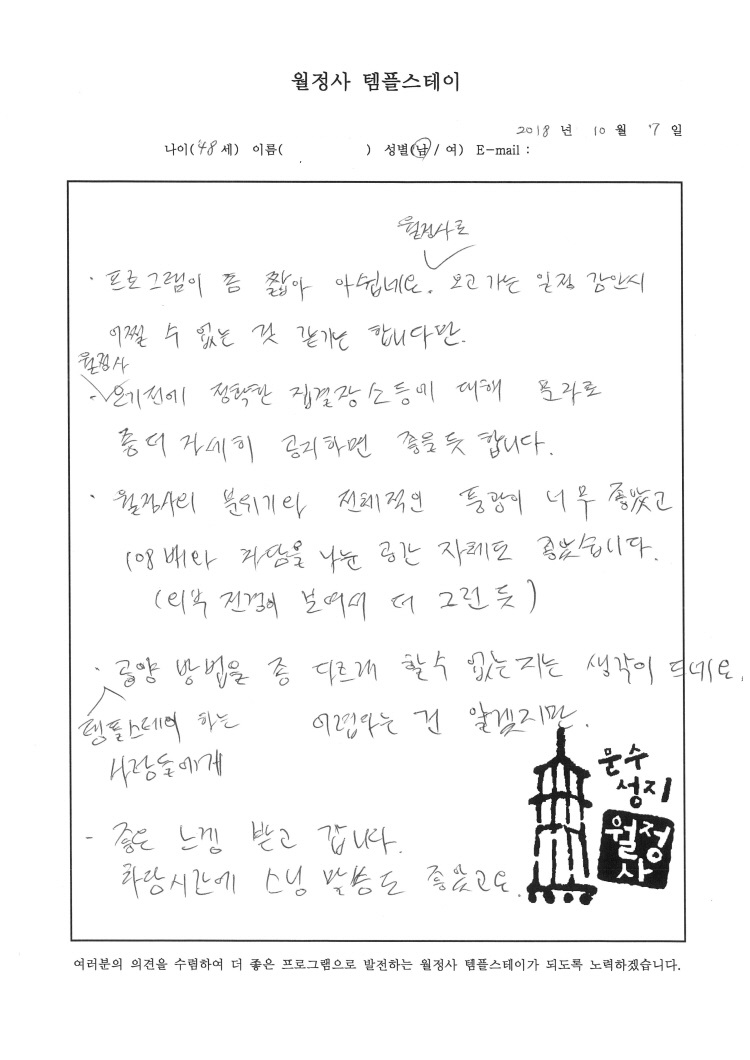 월정사 템플스테이
2018 년 10 월 7 일
나이( 48 세) 이름( ) 성별(남 / 여) E-mail :
월정사로
· 프로그램이 쫌 짧아 아쉽네요. 오고 가는 일정 감안시
어쩔 수 없는 것 같기는 합니다만.
월정사
- 오기전에 정확한 집결장소등에 대해 문자로
좀더 자세히 공지하면 좋을듯 합니다.
· 월정사의 분위기와 전체적인 풍광이 너무 좋았고
108배와 차담을 나눈 공간 자체도 좋았습니다.
(외부 전경이 보여서 더 그런 듯)
· 공양 방법을 좀 다르게 할수 없는지는 생각이 드네요.
템플스테이 하는 어렵다는 건 알겠지만.
사람들에게
- 좋은 느낌 받고 갑니다.
차담시간에 스님 말씀도 좋았고요.
문수
성지
월정
사
여러분의 의견을 수렴하여 더 좋은 프로그램으로 발전하는 월정사 템플스테이가 되도록 노력하겠습니다.